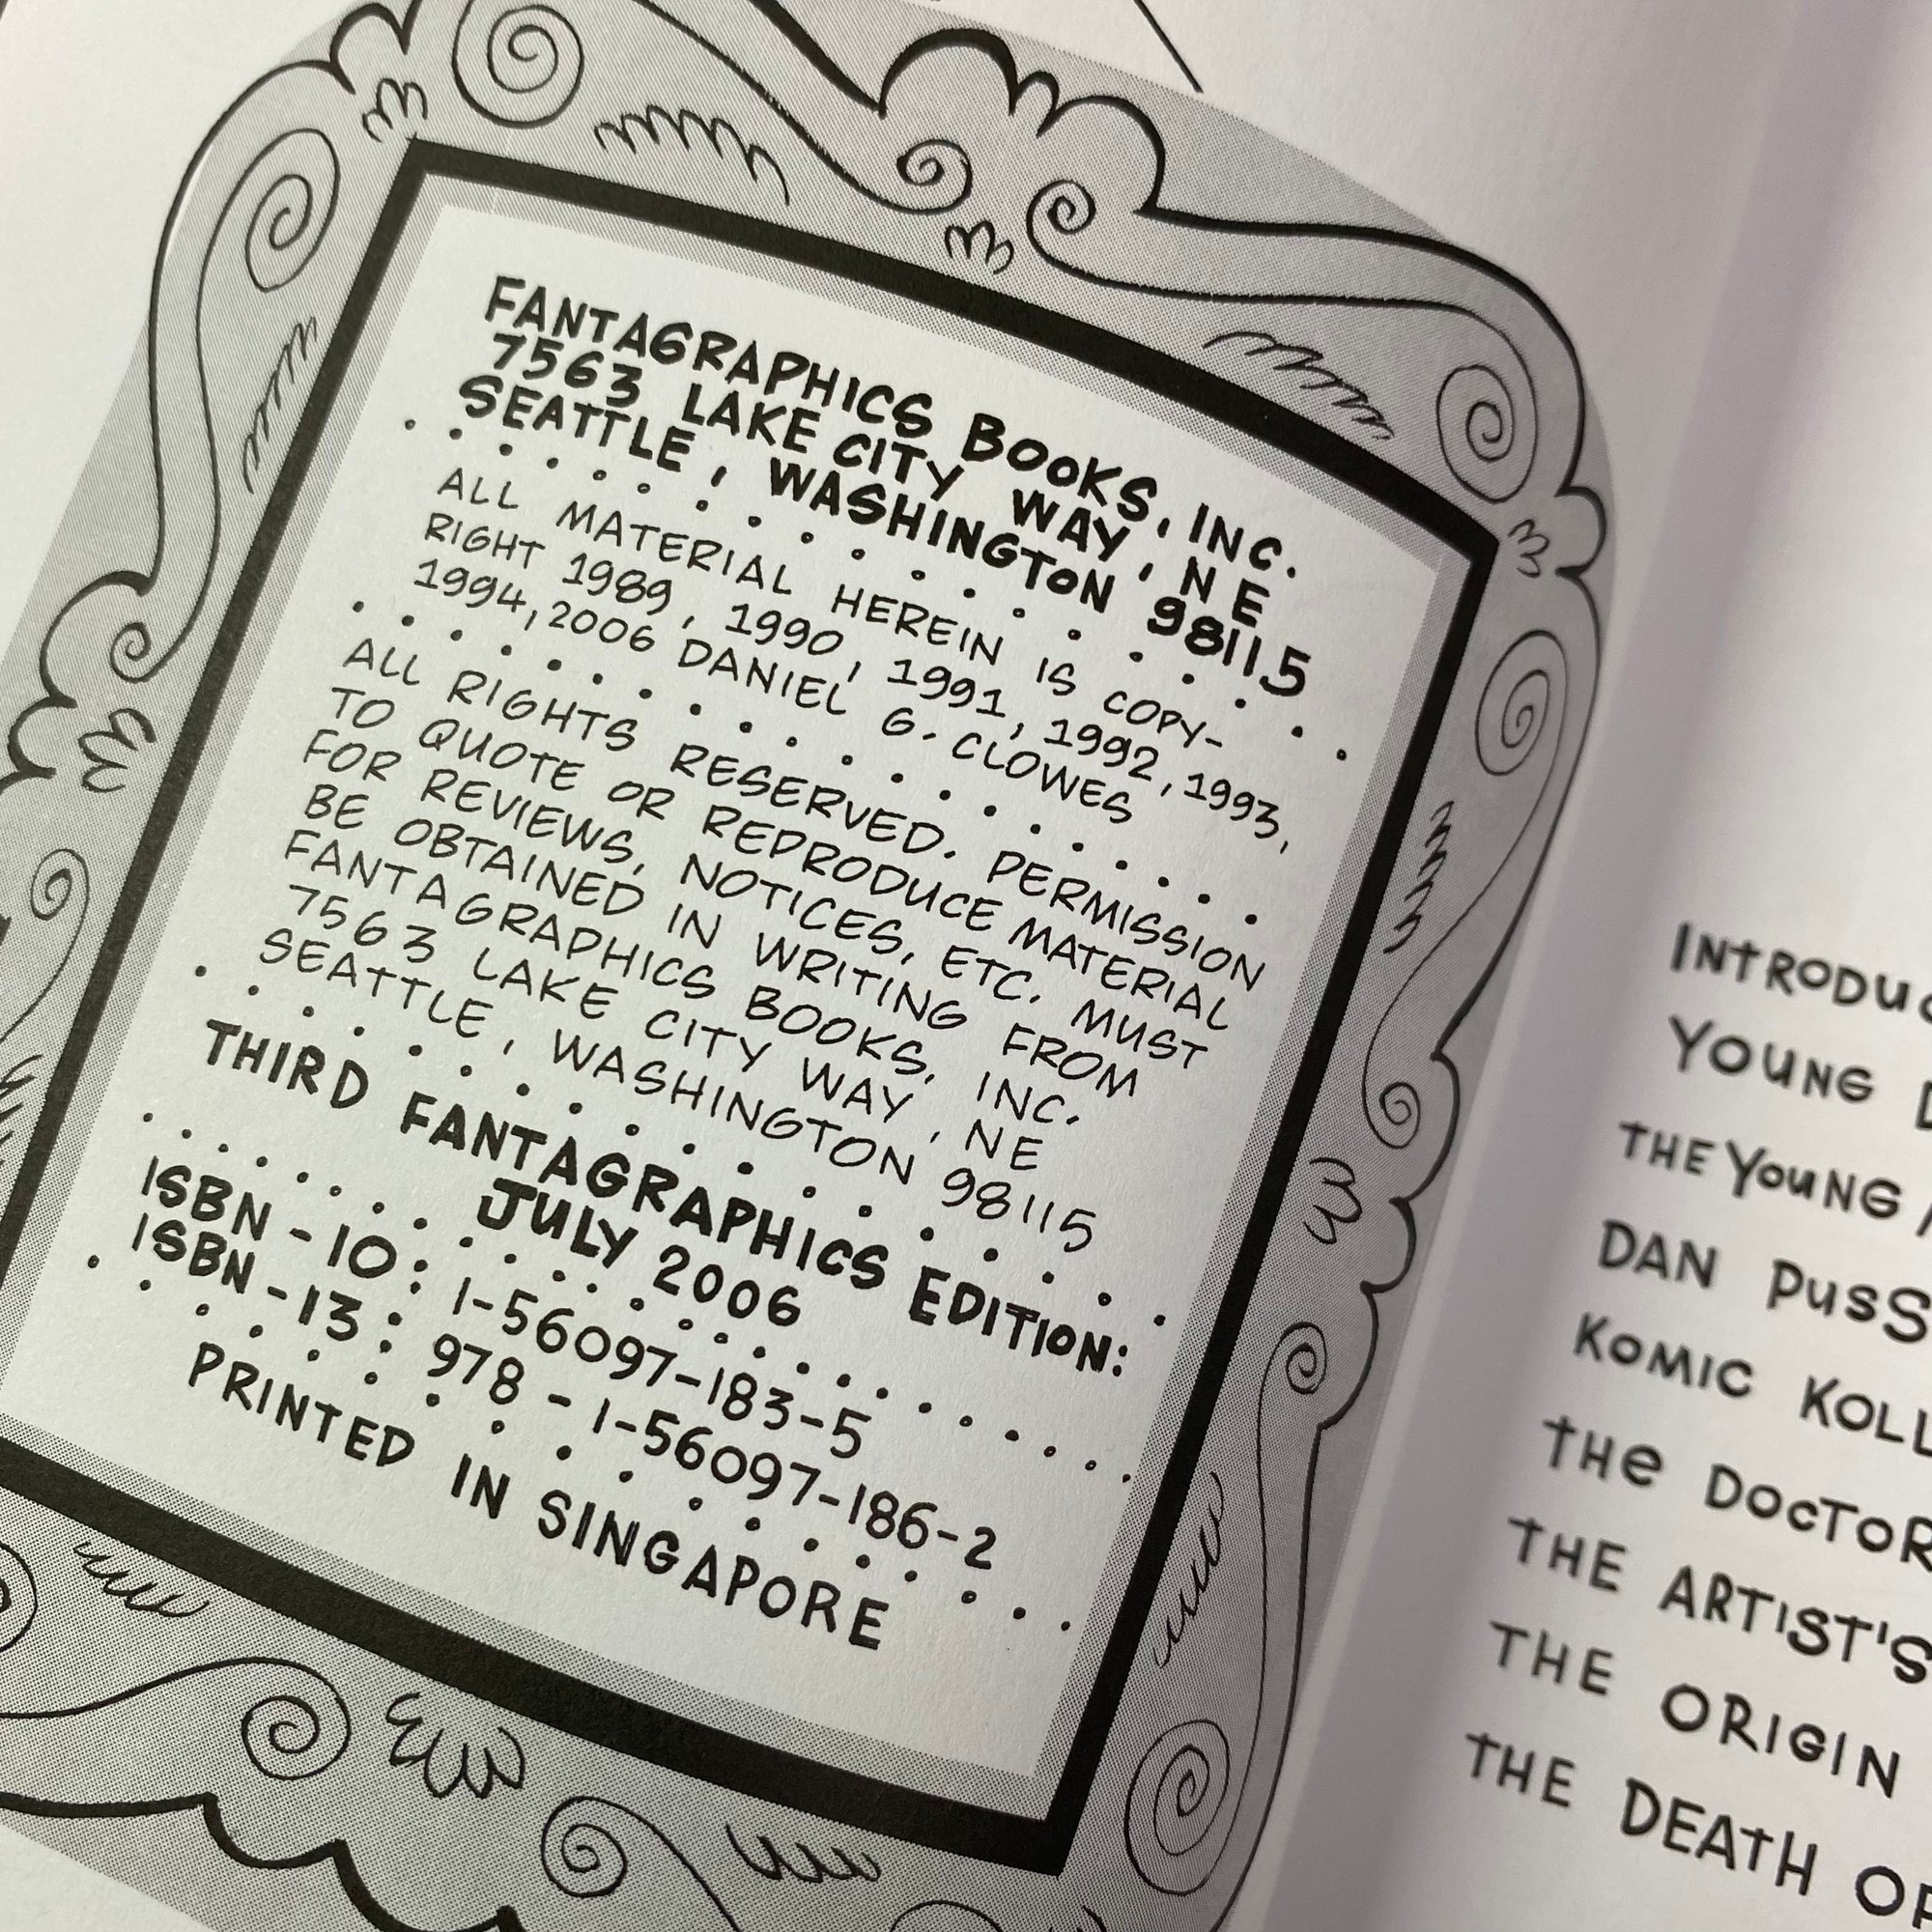 FANTAGRAPHICS BOOKS, INC.
7563 LAKE CITY WAY, NE
SEATTLE, WASHINGTON 98115
ALL MATERIAL HEREIN IS COPY-
RIGHT 1989, 1990, 1991, 1992, 1993,
1994, 2006 DANIEL G. CLOWES
ALL RIGHTS RESERVED. PERMISSION
TO QUOTE OR REPRODUCE MATERIAL
FOR REVIEWS, NOTICES, ETC. MUST
BE OBTAINED IN WRITING FROM
FANTAGRAPHICS BOOKS, INC.
7563 LAKE CITY WAY, NE
SEATTLE, WASHINGTON 98115
THIRD FANTAGRAPHICS EDITION:
JULY 2006
ISBN-10: 1-56097-183-5
ISBN-13: 978-1-56097-186-2
PRINTED IN SINGAPORE
YOUNG
THE YOUNG
DAN
KOMIC
THE DOCTOR
THE ARTIST'S
THE ORIGIN
THE DEATH